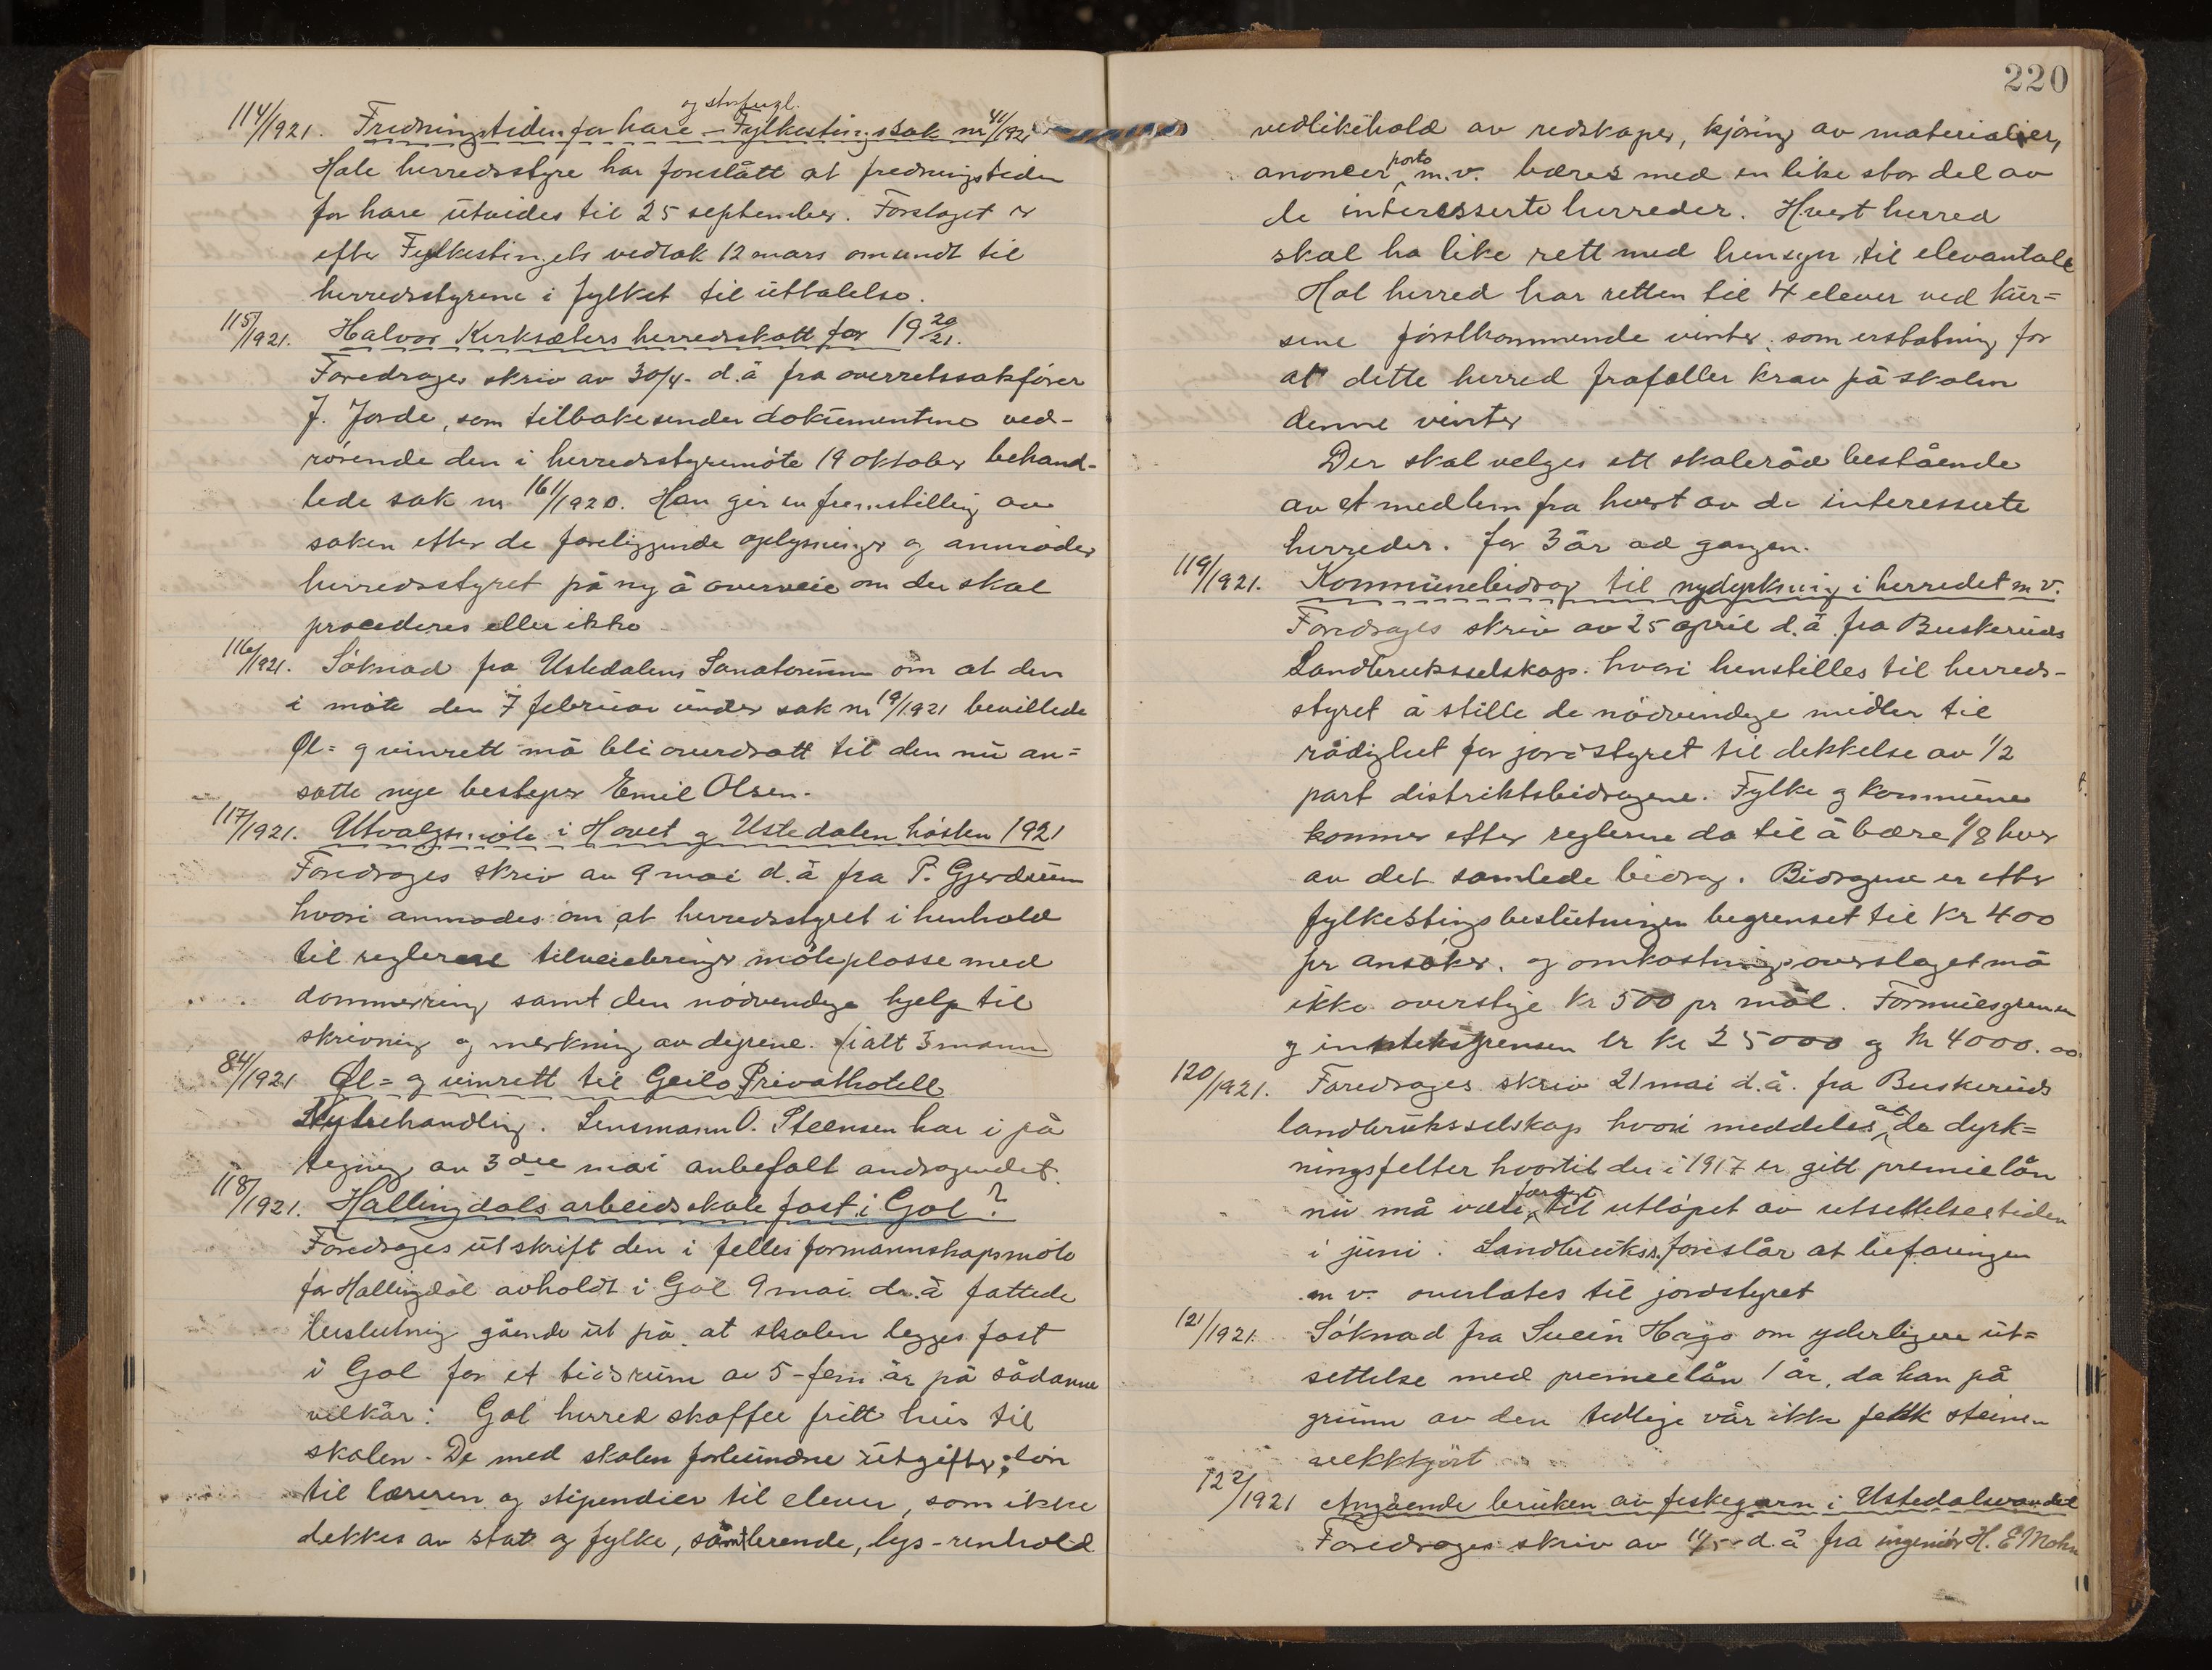 og storfugl.
114/1921. Fredningstiden for hare – Fylkestingssak nr 41/1921
Hole herredsstyre har foreslått at fredningstiden
for hare utvides til 25 september. Forslaget er
efter Fylkestingets vedtak 12 mars omsendt til
herredsstyrene i fylket til uttalelse.
115/1921. Halvor Kirksæters herredsskatt for 1920/21.
Foredrages skriv av 30/4- d.å fra overretssakfører
J. Jorde, som tilbakesender dokumentene ved-
rörende den i herredsstyremöte 19 oktober behand-
lede sak nr 161/1920. Han gir en fremstilling av
saken efter de foreliggende oplysninger og anmoder
herredsstyret på ny å overveie om der skal
procederes eller ikke
116/1921. Söknad fra Ustedalens Sanatorium om at den
i möte den 7 februar under sak nr 19/1921 bevillede
Øl= og vinrett må bli overdratt til den nu an=
satte nye bestyrer Emil Olsen.
117/1921. Utvalgsmöte i Hovet og Ustedalen hösten 1921
Foredrages skriv av 9 mai d.å fra P. Gjerdrum
hvori anmodes om at herredsstyret i henhold
til reglerne tilveiebringer möteplasse med
dommerring samt den nödvendige hjelp til
skrivning og merkning av dyrene. (ialt 3 mann)
84/1921 Øl= og vinrett til Geilo Privathotell
Nybehandling. Lensmann O. Steensen har i på
tegning av 3die mai anbefalt andragendet.
118/1921. Hallingdals arbeidsskole fast i Gol?
Foredrages utskrift den i felles formannskapsmöte
for Hallingdal avholdt i Gol 9 mai d.å fattede
beslutning gående ut på at skolen legges fast
i Gol for et tidsrum av 5-fem år på sådanne
vilkår: Gol herred skaffer fritt hus til
skolen. De med skolen forbundne utgifter: lön
til læreren og stipendier til elever, som ikke
dekkes av stat og fylke, samt brende, lys - renhold
220
vedlikehold av redskaper, kjöring av materialier,
anoncer porto m.v. bæres med en like stor del av
de interesserte herreder. Hvert herred
skal ha like rett med hensyn til elevantall
Hol herred har retten til 4 elever ved kur=
sene förstkommende vinter, som erstatning for
at dette herred frafaller krav på skolen
denne vinter
Der skal velges ett skoleråd bestående
av et medlem fra hvert av de interesserte
herreder. for 3 år ad gangen.
119/1921. Kommunebidrag til nydyrkning i herredet m.v.
Foredrages skriv av 25 april d.å fra Buskeruds
Landbruksselskap. hvori henstilles til herreds-
styret å stille de nödvendige midler til
rådighet for jordstyret til dekkelse av 1/2
part distriktsbidragene. Fylke og kommune
kommer efter reglerne da til å bære 1/8 hver
av det samlede bidrag. Bidragene er efter
fylkestingsbeslutningen begrenset til Kr 400
pr ansöker, og omkostningsoverslaget må
ikke overstige Kr 500 pr mål. Formuesgrensen
og inntektsgrensen er kr 25000 og kr 4000.00.
120/1921. Foredrages skriv 21 mai d.å. fra Buskeruds
landbruksselskap hvori meddeles at de dyrk=
ningsfelter hvortil der i 1917 er gitt premielån
nu må være færdige til utlöpet av utsettelsestiden
i juni. Landbrukss. foreslår at befaringen
m v. overlates til jordstyret
121/1921. Söknad fra Svein Hagö om yderligere ut=
settelse med premielån 1 år, da han på
grunn av den tidlige vår ikke fekk steinen
vekkkjört
122/1921 Angående bruken av fiskegarn i Ustedalsvandet
Foredrages skriv av 11/5- d.å fra ingeniör H. E Mohn